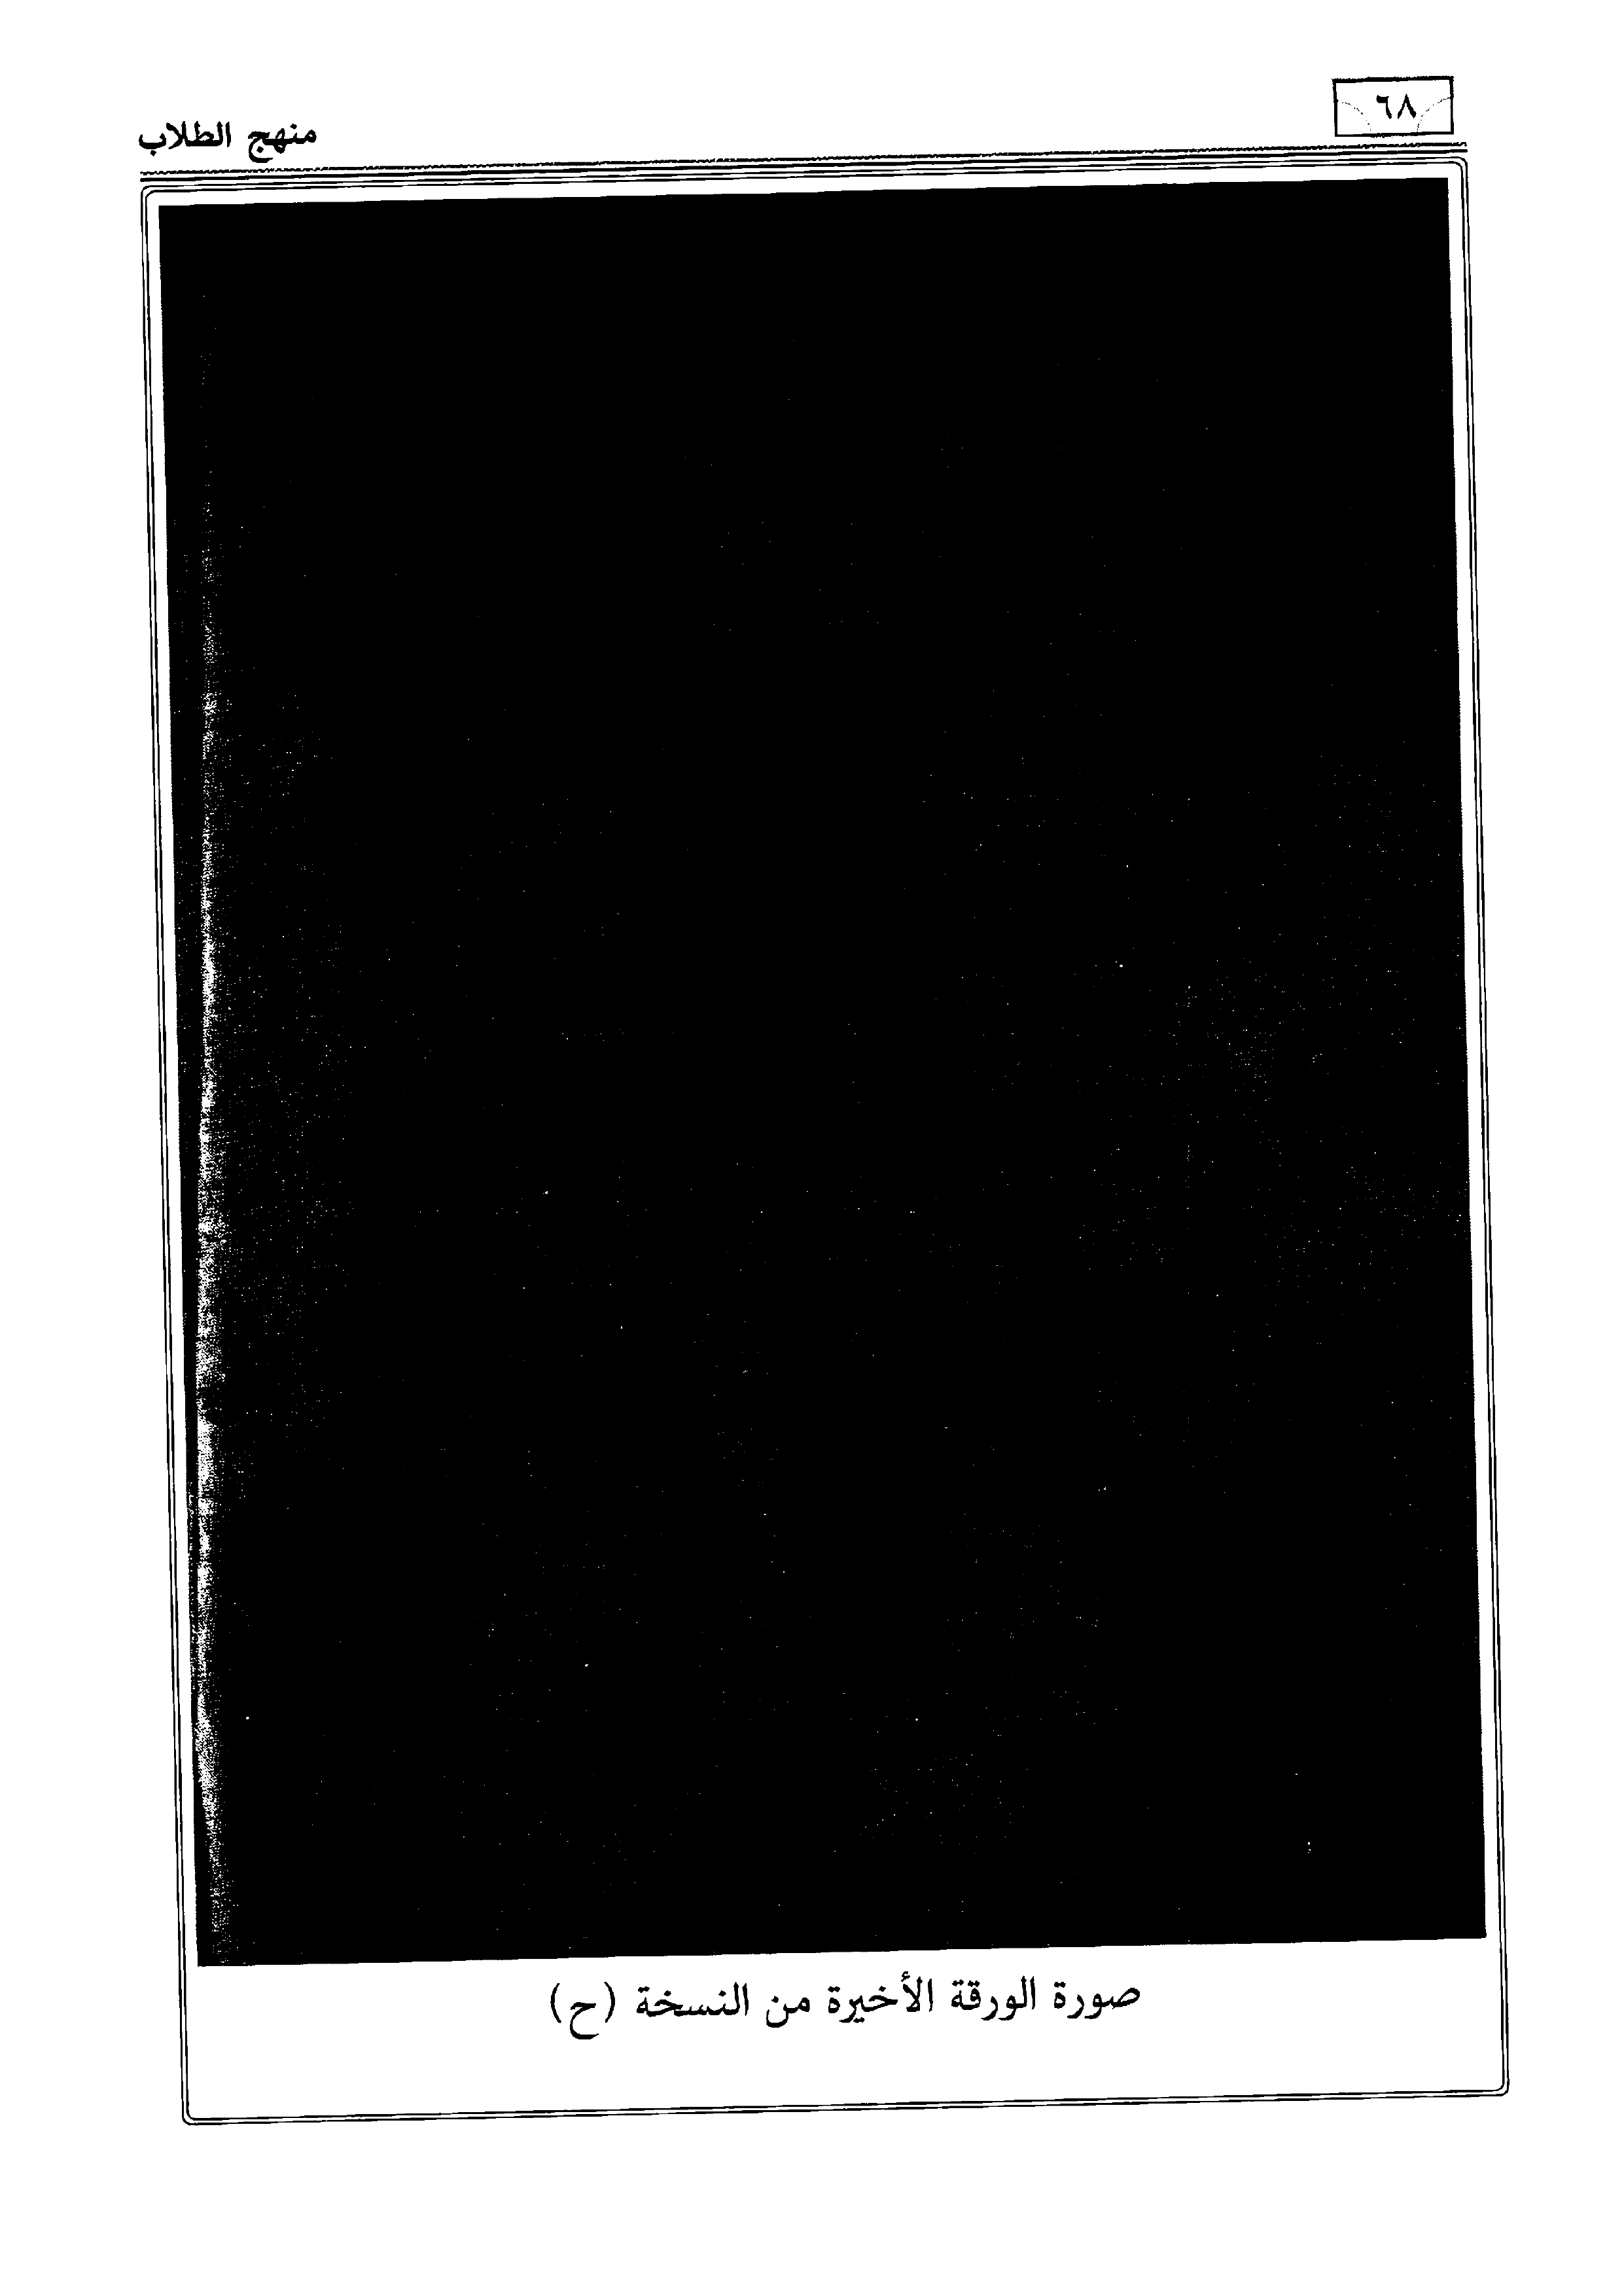 ٦٨
منهج الطلاب
صورة الورقة الأخيرة من النسخة (ح)